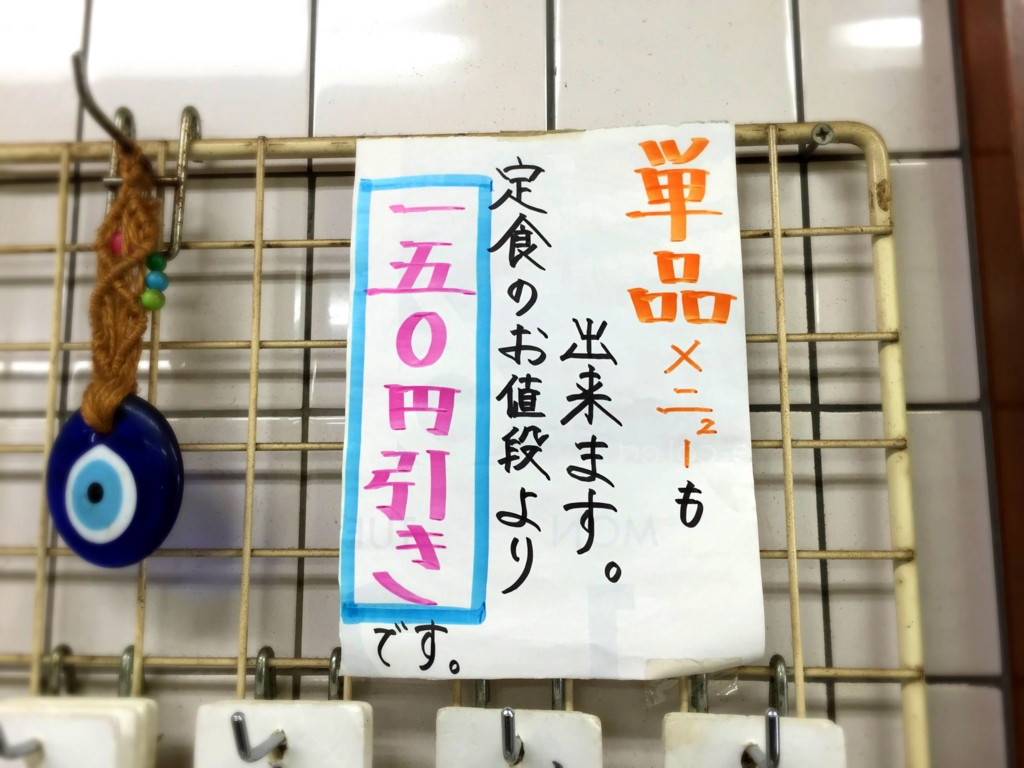 単品メニューも
出来ます。
定食のお値段より
一五〇円引き
です。